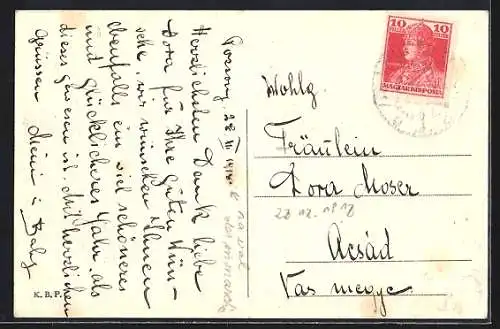 Pozsony, 28 XII 1918.
Herzlichsten Dank liebe
Dora für Ihre guten Wün-
sche, wir wünschen Ihnen
ebenfalls ein viel schöneres
und glücklicheres Jahr, als
dieses gewesen ist. Mit herzlichen
Grüssen Mimi u
K. B. P.
10 10
MAGYAR KIR. POSTA
Wohlg.
Fräulein
Dora Moser
28.12.1918
Acsád
Vas megye.